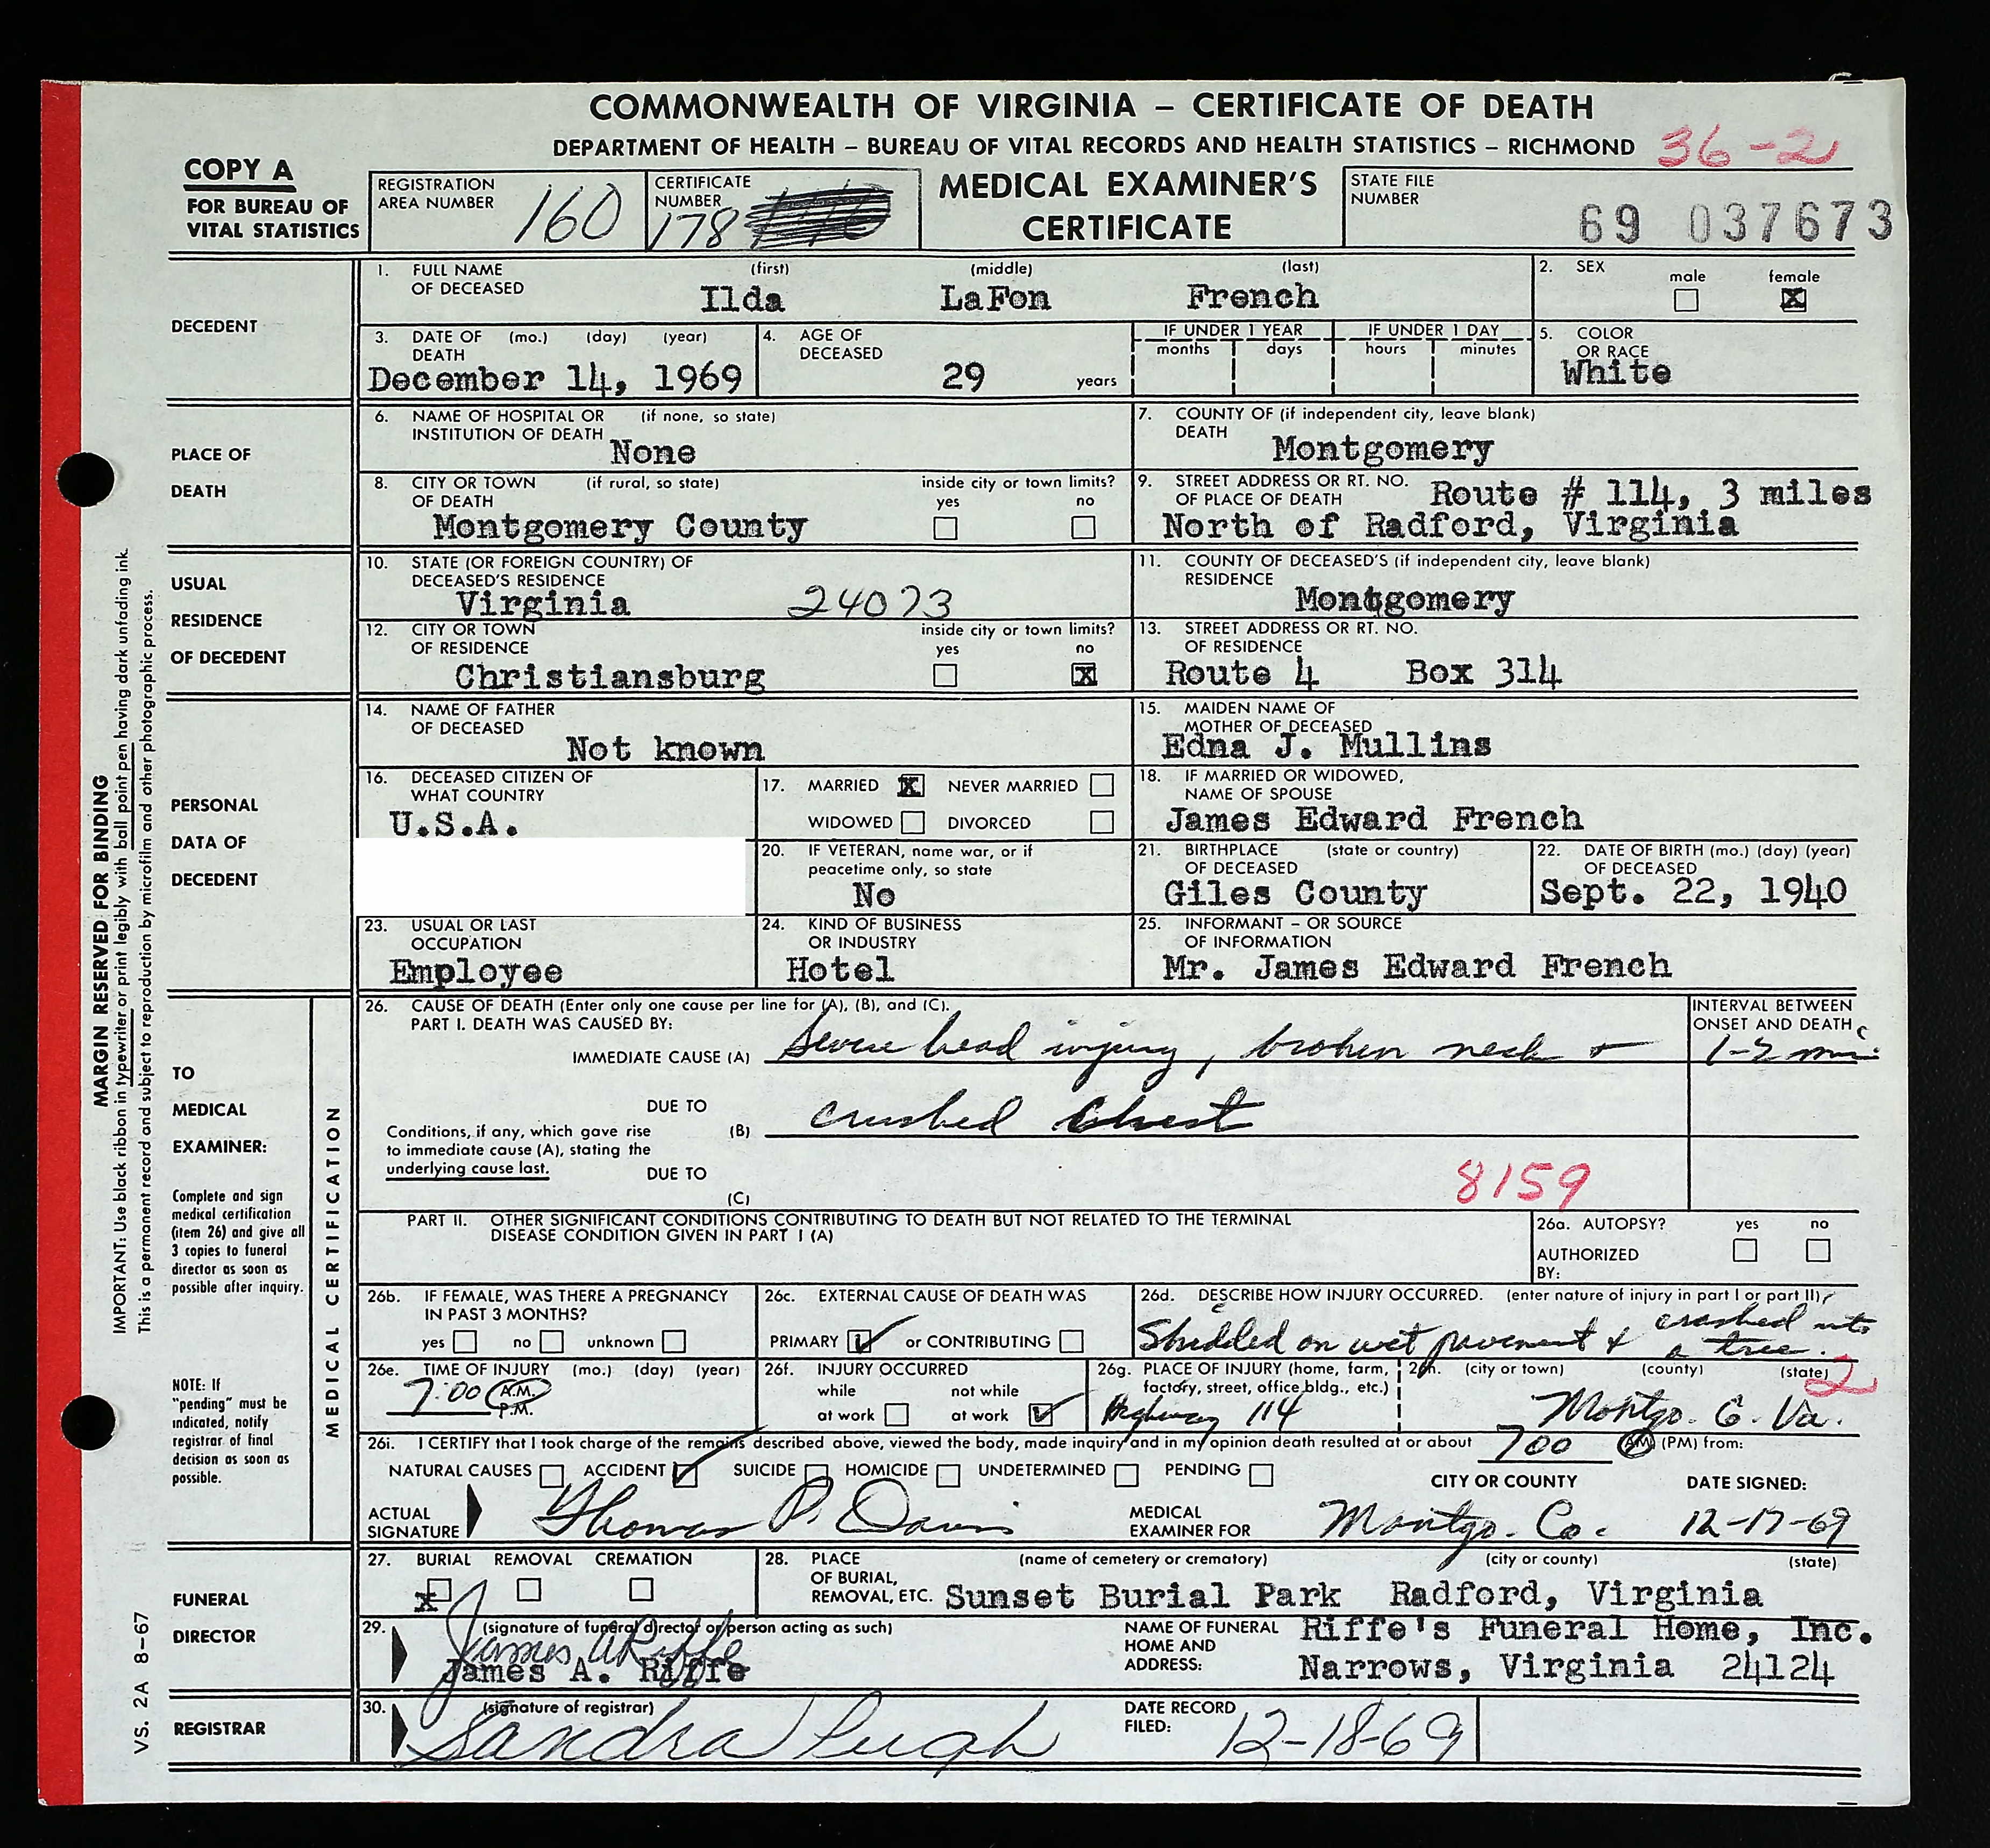 COMMONWEALTH OF VIRGINIA – CERTIFICATE OF DEATH
DEPARTMENT OF HEALTH – BUREAU OF VITAL RECORDS AND HEALTH STATISTICS – RICHMOND 36-2
COPY A
FOR BUREAU OF
VITAL STATISTICS
REGISTRATION
AREA NUMBER 160
CERTIFICATE
NUMBER
178
MEDICAL EXAMINER'S
CERTIFICATE
STATE FILE
NUMBER
69 037673
DECEDENT
1. FULL NAME (first) (middle) (last)
OF DECEASED
Ilda LaFon French
2. SEX
male female
X
3. DATE OF (mo.) (day) (year)
DEATH
December 14, 1969
4. AGE OF
DECEASED
29 years
IF UNDER 1 YEAR IF UNDER 1 DAY
months days hours minutes
5. COLOR
OR RACE
White
PLACE OF
DEATH
6. NAME OF HOSPITAL OR (if none, so state)
INSTITUTION OF DEATH
None
7. COUNTY OF (if independent city, leave blank)
DEATH
Montgomery
8. CITY OR TOWN (if rural, so state) inside city or town limits?
OF DEATH yes no
Montgomery County
9. STREET ADDRESS OR RT. NO.
OF PLACE OF DEATH Route # 114, 3 miles
North of Radford, Virginia
USUAL
RESIDENCE
OF DECEDENT
10. STATE (OR FOREIGN COUNTRY) OF
DECEASED'S RESIDENCE
Virginia 24073
11. COUNTY OF DECEASED'S (if independent city, leave blank)
RESIDENCE
Montgomery
12. CITY OR TOWN inside city or town limits?
OF RESIDENCE yes no
Christiansburg X
13. STREET ADDRESS OR RT. NO.
OF RESIDENCE
Route 4 Box 314
PERSONAL
DATA OF
DECEDENT
14. NAME OF FATHER
OF DECEASED
Not known
15. MAIDEN NAME OF
MOTHER OF DECEASED
Edna J. Mullins
16. DECEASED CITIZEN OF
WHAT COUNTRY
U.S.A.
17. MARRIED X NEVER MARRIED
WIDOWED DIVORCED
18. IF MARRIED OR WIDOWED,
NAME OF SPOUSE
James Edward French
20. IF VETERAN, name war, or if
peacetime only, so state
No
21. BIRTHPLACE (state or country)
OF DECEASED
Giles County
22. DATE OF BIRTH (mo.) (day) (year)
OF DECEASED
Sept. 22, 1940
23. USUAL OR LAST
OCCUPATION
Employee
24. KIND OF BUSINESS
OR INDUSTRY
Hotel
25. INFORMANT – OR SOURCE
OF INFORMATION
Mr. James Edward French
TO
MEDICAL
EXAMINER:
Complete and sign
medical certification
(item 26) and give all
3 copies to funeral
director as soon as
possible after inquiry.
NOTE: If
"pending" must be
indicated, notify
registrar of final
decision as soon as
possible.
MEDICAL CERTIFICATION
26. CAUSE OF DEATH (Enter only one cause per line for (A), (B), and (C).
PART I. DEATH WAS CAUSED BY:
IMMEDIATE CAUSE (A) Severe head injury, broken neck +
INTERVAL BETWEEN
ONSET AND DEATH
1-2 min.
DUE TO
(B) crushed chest
Conditions, if any, which gave rise
to immediate cause (A), stating the
underlying cause last.
DUE TO
(C)
8159
PART II. OTHER SIGNIFICANT CONDITIONS CONTRIBUTING TO DEATH BUT NOT RELATED TO THE TERMINAL
DISEASE CONDITION GIVEN IN PART I (A)
26a. AUTOPSY? yes no
AUTHORIZED
BY:
26b. IF FEMALE, WAS THERE A PREGNANCY
IN PAST 3 MONTHS?
yes no unknown
26c. EXTERNAL CAUSE OF DEATH WAS
PRIMARY ✓ or CONTRIBUTING
26d. DESCRIBE HOW INJURY OCCURRED. (enter nature of injury in part I or part II)
Skidded on wet pavement & crashed into
a tree.
26e. TIME OF INJURY (mo.) (day) (year)
7:00 A.M.
P.M.
26f. INJURY OCCURRED
while not while
at work at work ✓
26g. PLACE OF INJURY (home, farm,
factory, street, office bldg., etc.)
Highway 114
26h. (city or town) (county) (state) 2
Montgo. Co. Va.
26i. I CERTIFY that I took charge of the remains described above, viewed the body, made inquiry and in my opinion death resulted at or about 700 (AM) (PM) from:
NATURAL CAUSES ACCIDENT ✓ SUICIDE HOMICIDE UNDETERMINED PENDING
CITY OR COUNTY DATE SIGNED:
ACTUAL
SIGNATURE Thomas P. Davis
MEDICAL
EXAMINER FOR Montgo. Co. 12-17-69
FUNERAL
DIRECTOR
27. BURIAL REMOVAL CREMATION
X
28. PLACE (name of cemetery or crematory) (city or county) (state)
OF BURIAL,
REMOVAL, ETC. Sunset Burial Park Radford, Virginia
29. (signature of funeral director or person acting as such)
James A Riffe
James A. Riffe
NAME OF FUNERAL
HOME AND
ADDRESS:
Riffe's Funeral Home, Inc.
Narrows, Virginia 24124
REGISTRAR
30. (signature of registrar)
Sandra Pugh
DATE RECORD
FILED: 12-18-69
MARGIN RESERVED FOR BINDING
IMPORTANT: Use black ribbon in typewriter or print legibly with ball point pen having dark unfading ink.
This is a permanent record and subject to reproduction by microfilm and other photographic process.
VS. 2A 8–67